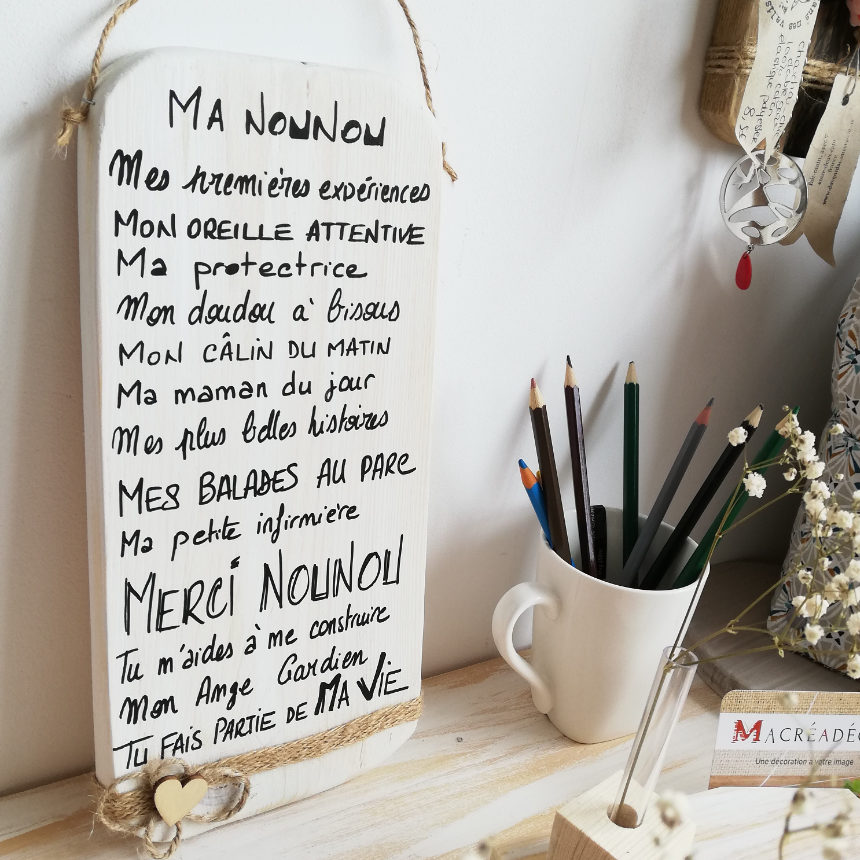 MA NOUNOU
Mes premières expériences
MON OREILLE ATTENTIVE
Ma protectrice
Mon doudou à bisous
MON CÂLIN DU MATIN
Ma maman du jour
Mes plus belles histoires
MES BALADES AU PARC
Ma petite infirmière
MERCI NOUNOU
Tu m'aides à me construire
Mon Ange Gardien
TU FAIS PARTIE DE MA VIE
MACRÉADÉCO
Une décoration à votre image